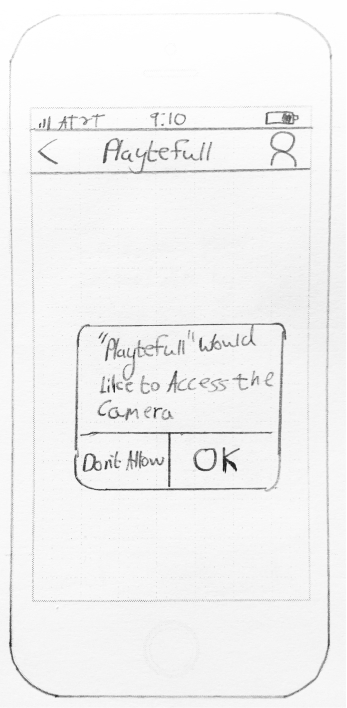 AT&T 9:10
Playtefull
"Playtefull" Would
Like to Access the
Camera
Don't Allow OK